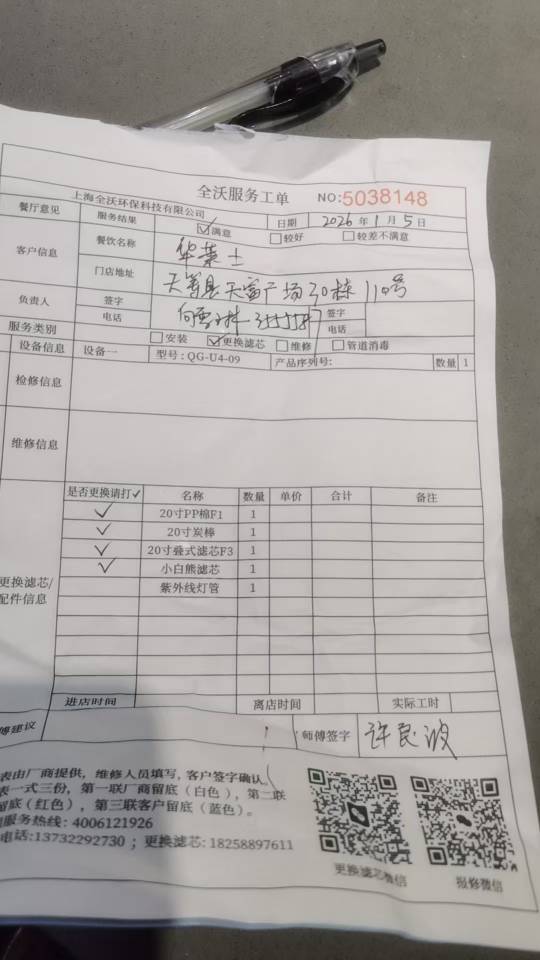 全沃服务工单 NO:5038148
上海全沃环保科技有限公司
餐厅意见 服务结果 ☑满意 日期 2026年1月5日
□较好 □较差不满意
客户信息 餐饮名称 华莱士
门店地址 天等县天富广场30栋110号
负责人 签字 签字
电话 电话
服务类别 □安装 ☑更换滤芯 □维修 □管道消毒
设备信息 设备一 型号:QG-U4-09 产品序列号: 数量 1
检修信息
维修信息
是否更换请打✓ 名称 数量 单价 合计 备注
✓ 20寸PP棉F1 1
✓ 20寸炭棒 1
✓ 20寸叠式滤芯F3 1
✓ 小白熊滤芯 1
紫外线灯管 1
更换滤芯/
配件信息
进店时间 离店时间 实际工时
傅建议 师傅签字 许良波
表由厂商提供，维修人员填写，客户签字确认。
表一式三份，第一联厂商留底（白色），第二联
留底（红色），第三联客户留底（蓝色）。
服务热线: 4006121926
电话:13732292730；更换滤芯: 18258897611
更换滤芯微信 报修微信